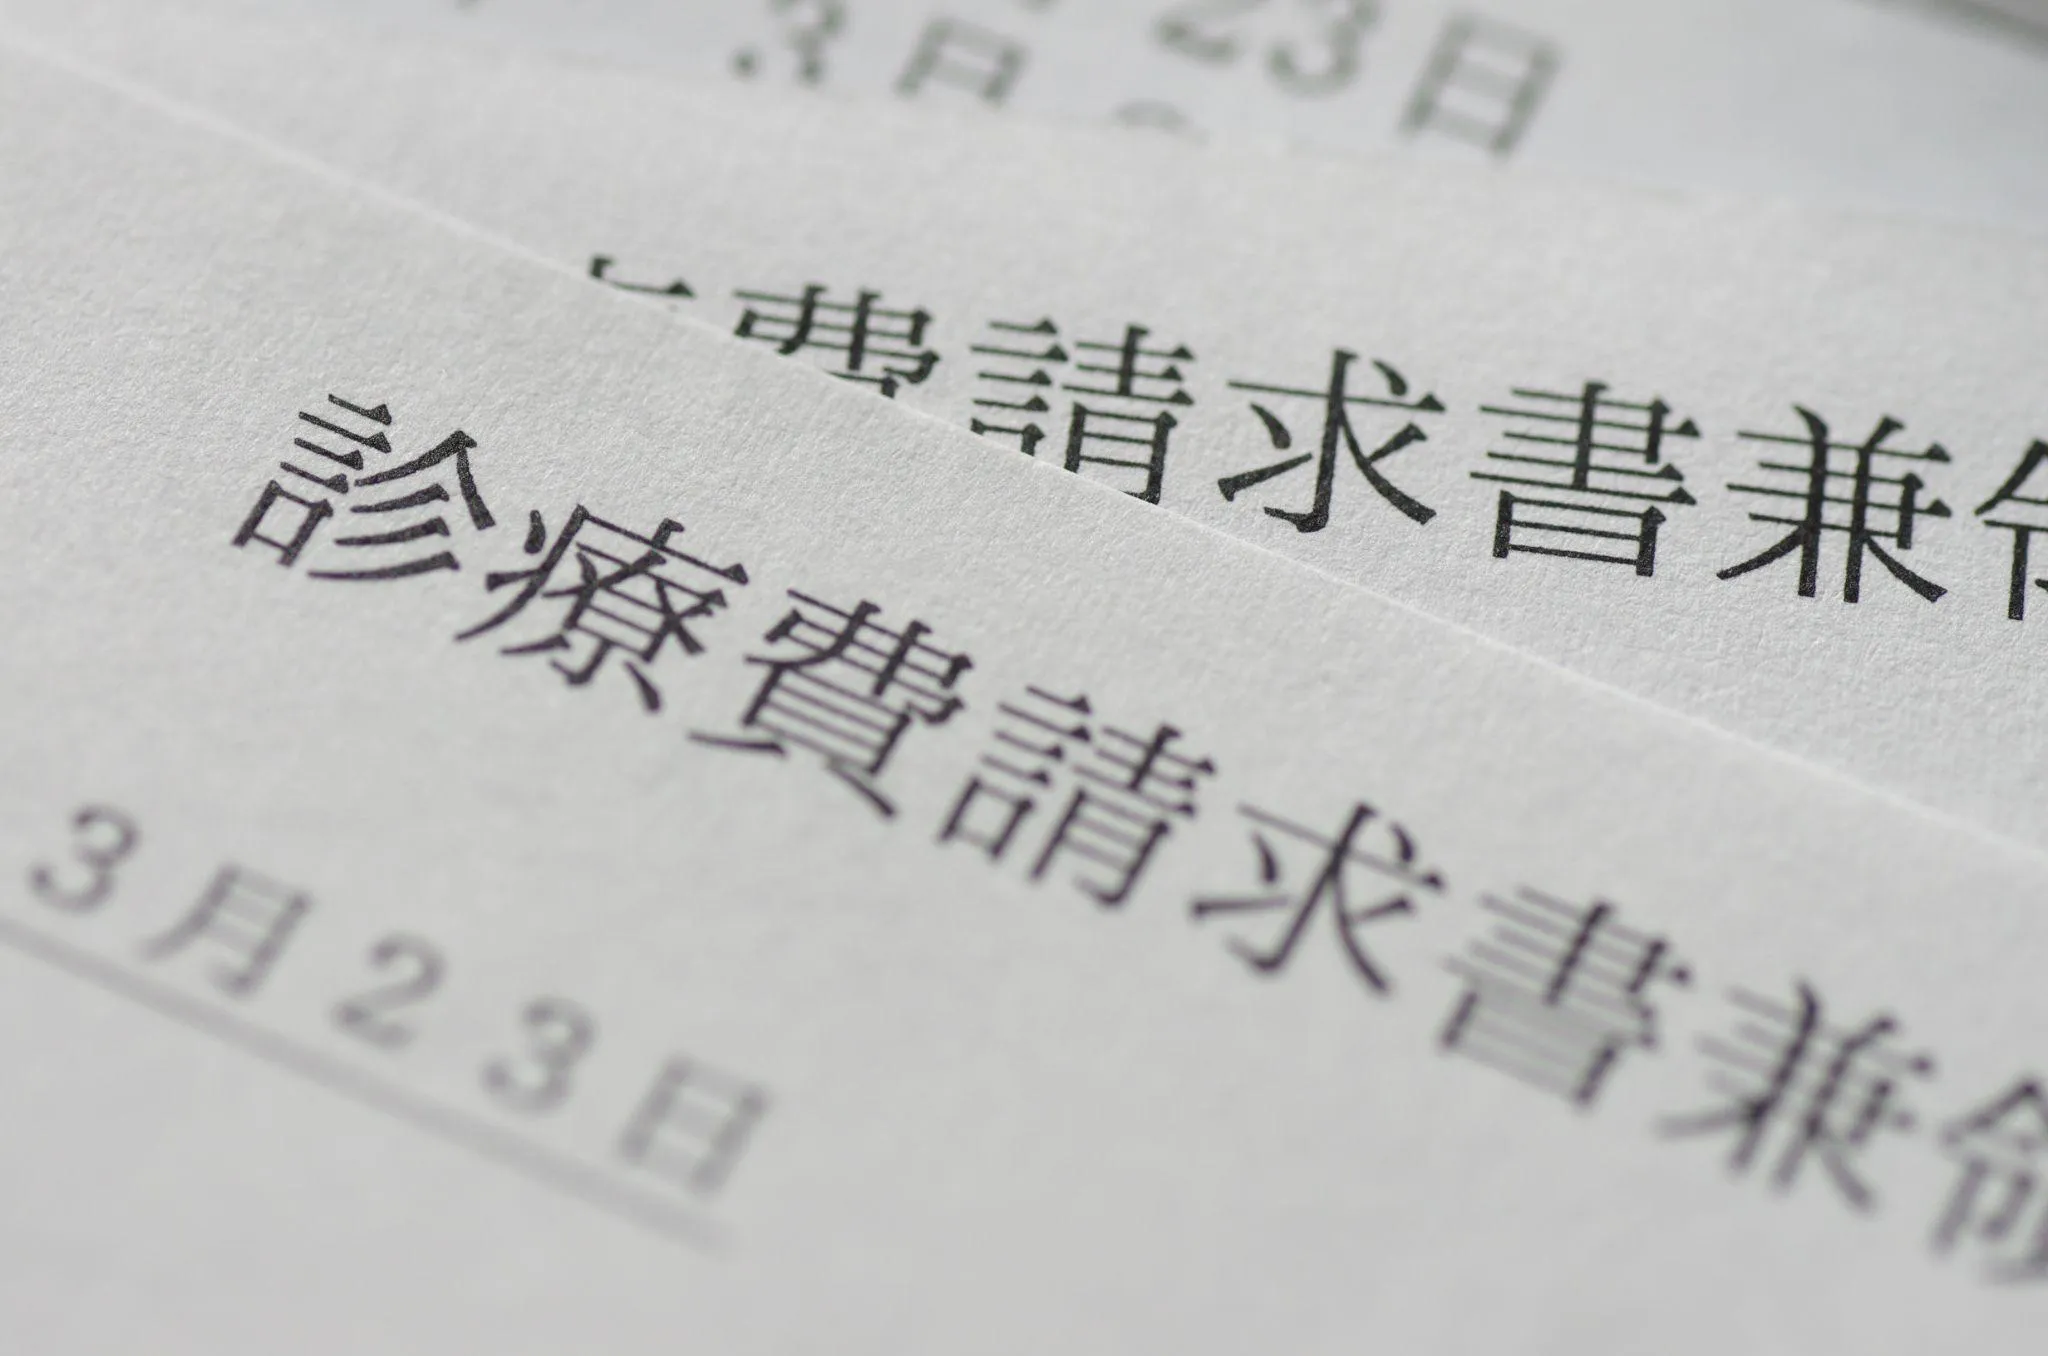 3日 23日
費請求書兼領
診療費請求書兼領
3月23日